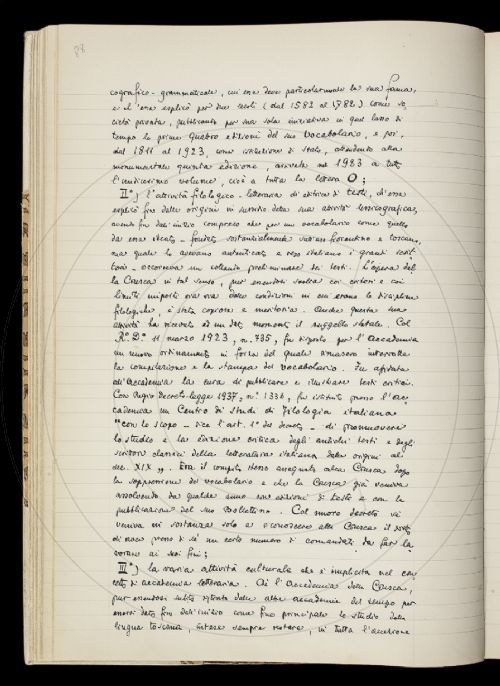 cografico-grammaticale, cui essa deve particolarmente la sua fama,
e ch'essa esplicò per due secoli (dal 1582 al 1782) come so-
cietà privata, pubblicando per sua sola iniziativa in quel lasso di
tempo le prime quattro edizioni del suo vocabolario, e poi,
dal 1811 al 1923, come istituzione di stato, attendendo alla
monumentale quinta edizione, arrivata nel 1923 a tutto
l'undicesimo volume, cioè a tutta la lettera O;
II°) l'attività filologico-letteraria di editrice di testi, ch'essa
esplicò fin dalle origini in servizio della sua attività lessicografica,
avendo fin dall'inizio compreso che per un vocabolario come quello
da essa ideato - fondato sostanzialmente sull'uso fiorentino e toscano,
ma quale lo avevano autenticato e reso italiano i grandi scrit-
tori - occorreva un vaglio preliminare dei testi. L'opera del-
la Crusca in tal senso, pur essendosi svolta coi criteri e coi
limiti imposti via via dalle condizioni in cui erano le discipline
filologiche, è stata copiosa e meritoria. Anche questa sua
attività ha ricevuto ad un dato momento il suggello statale. Col
R.° D.° 11 marzo 1923, n. 735, fu disposto per l'Accademia
un nuovo ordinamento in forza del quale rimasero interrotte
la compilazione e la stampa del vocabolario. Fu affidata
all'Accademia la cura di pubblicare e illustrare testi critici.
Con Regio Decreto-legge 1937, n.° 1336, fu istituito presso l'Ac-
cademia un Centro di Studi di Filologia italiana
"con lo scopo - dice l'art. 1° del decreto - di promuovere
lo studio e la edizione critica degli antichi testi e degli
scrittori classici della letteratura italiana dalle origini al
sec. XIX". Era il compito stesso assegnato alla Crusca dopo
la soppressione del vocabolario e che la Crusca già veniva
assolvendo da qualche anno con edizioni di testi e con la
pubblicazione del suo Bollettino. Col nuovo decreto si
veniva in sostanza solo a riconoscere alla Crusca il diritto
di avere presso di sé un certo numero di comandati da far la-
vorare ai suoi fini;
III°) la varia attività culturale che è implicita nel con-
cetto di accademia letteraria. Ch l'Accademia della Crusca,
pur essendosi subito distinta dalle altre accademie del tempo per
essersi data fin dall'inizio come fine principale lo studio della
lingua toscana, intese sempre restare, in tutta l'accezione